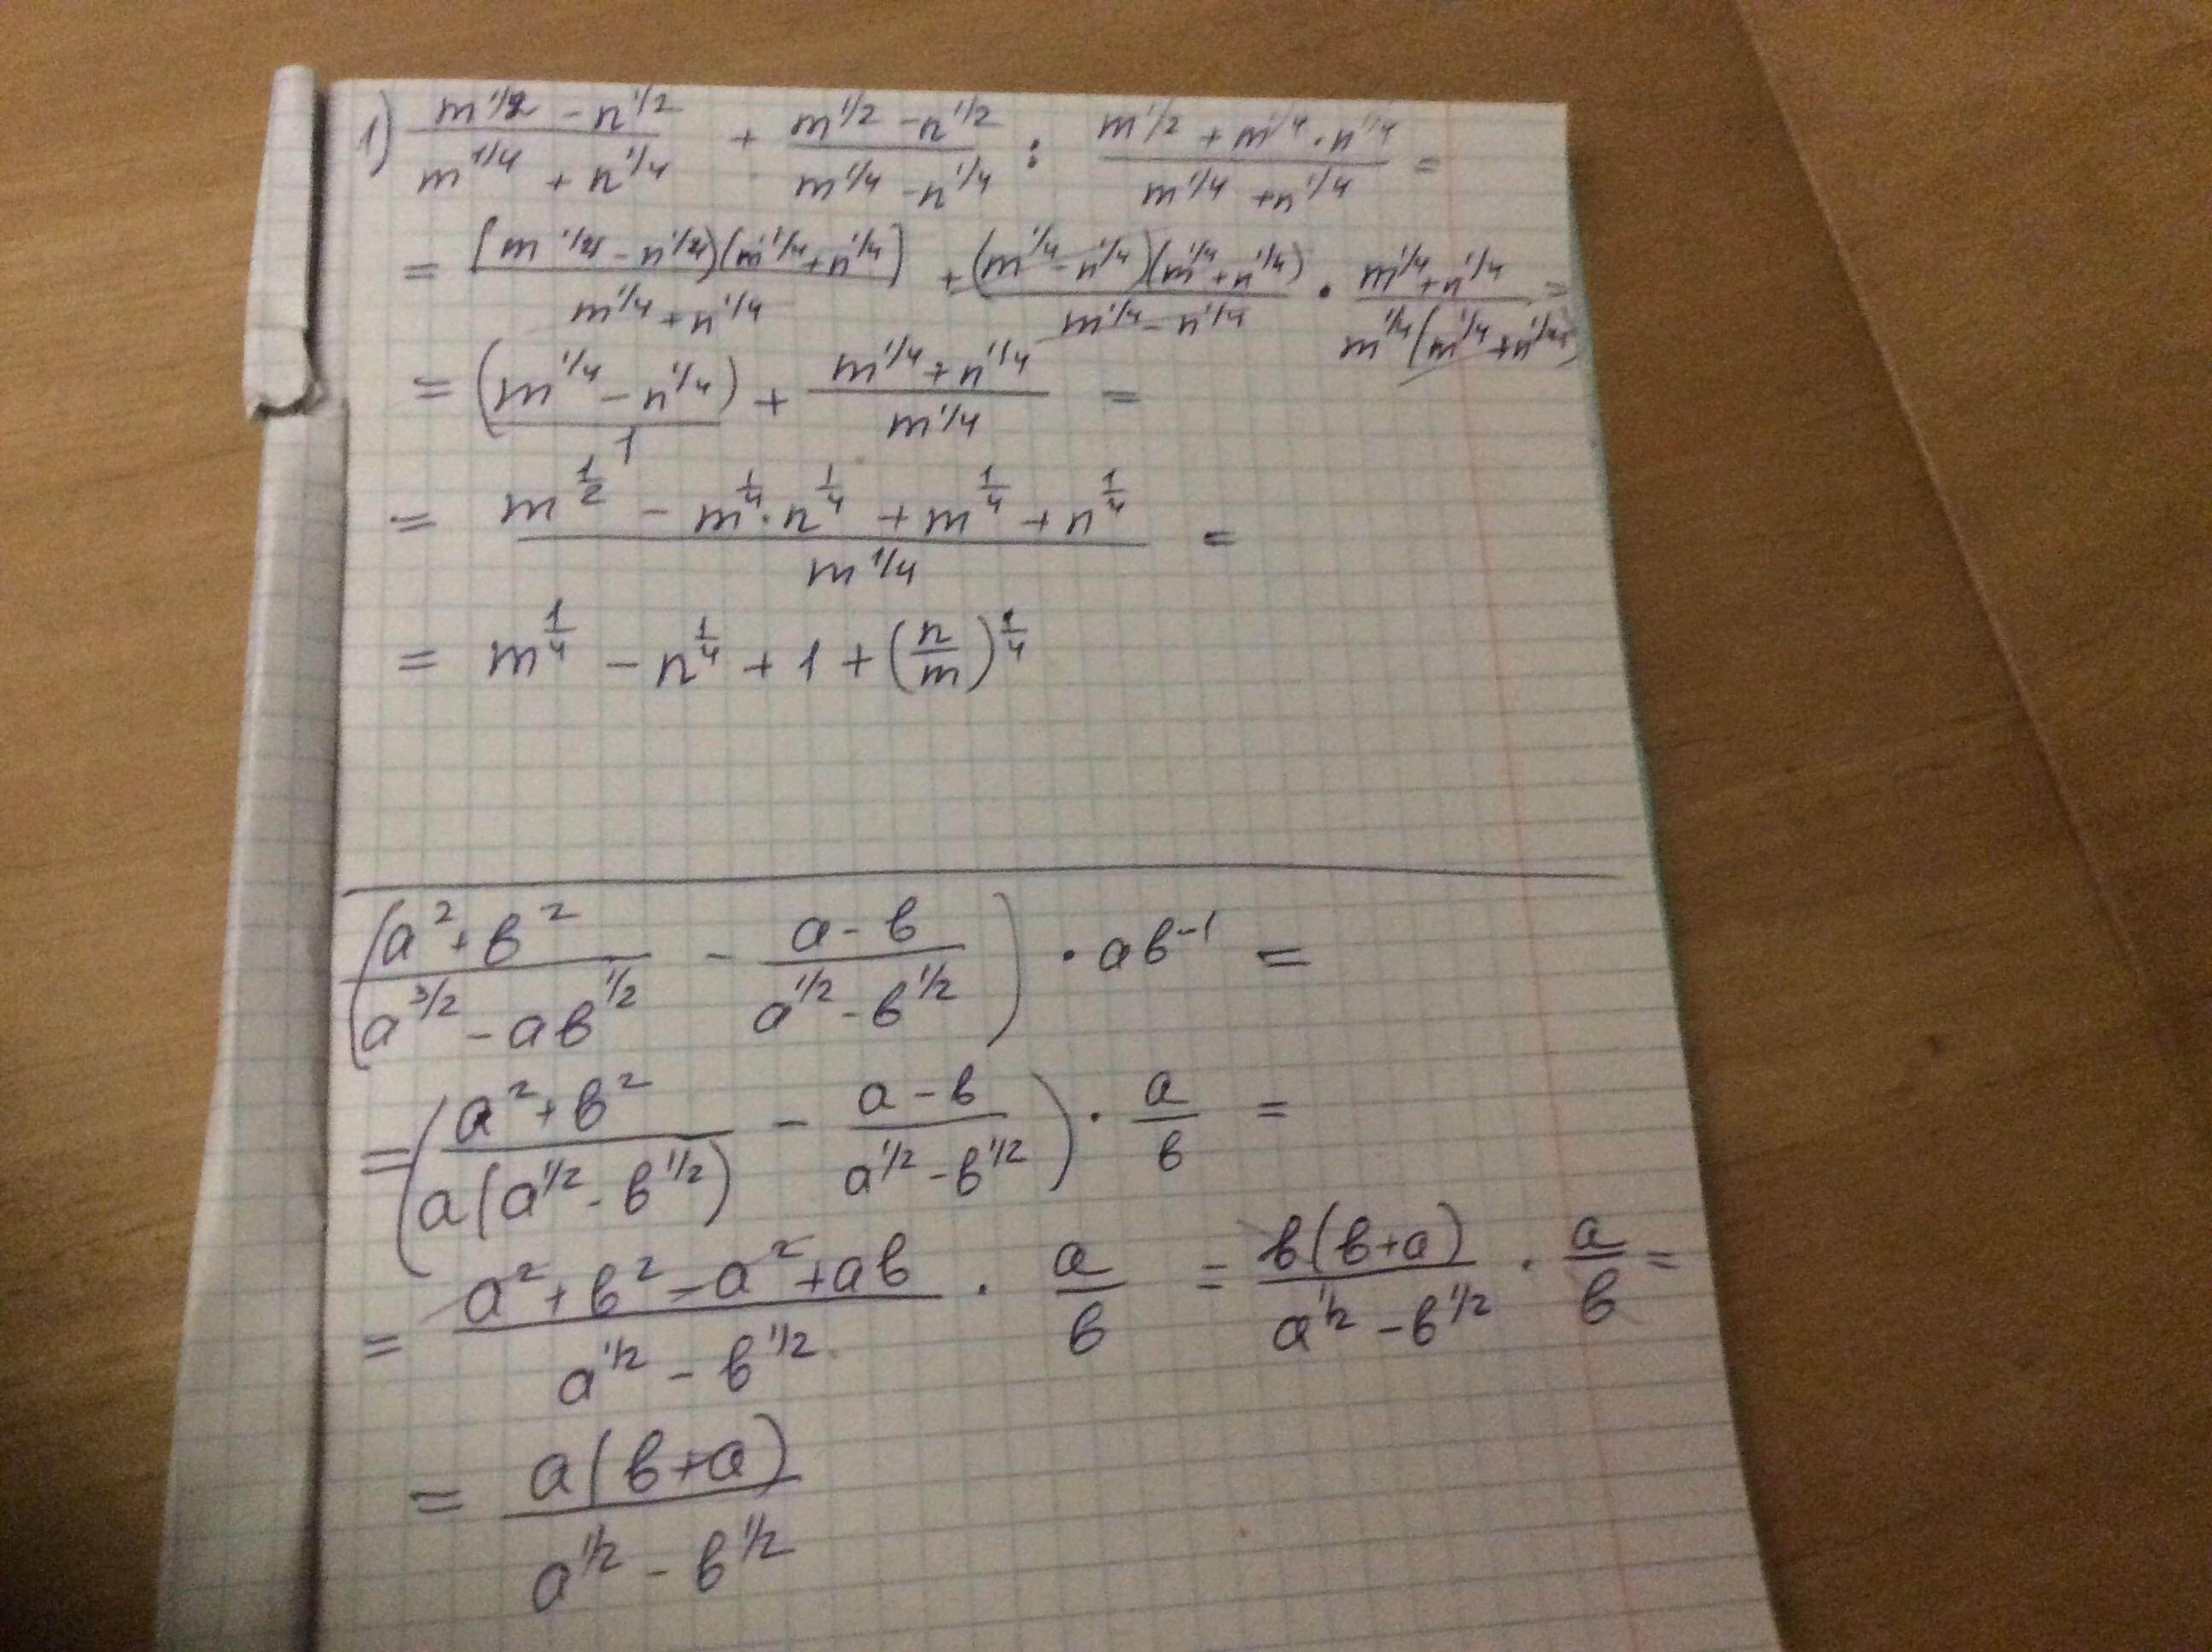 1) (m^1/2 - n^1/2)/(m^1/4 + n^1/4) + (m^1/2 - n^1/2)/(m^1/4 - n^1/4) : (m^1/2 + m^1/4 · n^1/4)/(m^1/4 + n^1/4) =
= (m^1/4 - n^1/4)(m^1/4 + n^1/4)/(m^1/4 + n^1/4) + (m^1/4 - n^1/4)(m^1/4 + n^1/4)/(m^1/4 - n^1/4) · (m^1/4 + n^1/4)/(m^1/4(m^1/4 + n^1/4)) =
= (m^1/4 - n^1/4)/1 + (m^1/4 + n^1/4)/(m^1/4) =
= (m^1/2 - m^1/4 · n^1/4 + m^1/4 + n^1/4)/(m^1/4) =
= m^1/4 - n^1/4 + 1 + (n/m)^1/4
((a² + в²)/(a^3/2 - aв^1/2) - (a - в)/(a^1/2 - в^1/2)) · aв^-1 =
= ((a² + в²)/(a(a^1/2 - в^1/2)) - (a - в)/(a^1/2 - в^1/2)) · a/в =
= (a² + в² - a² + aв)/(a^1/2 - в^1/2) · a/в = в(в+a)/(a^1/2 - в^1/2) · a/в =
= a(в+a)/(a^1/2 - в^1/2)